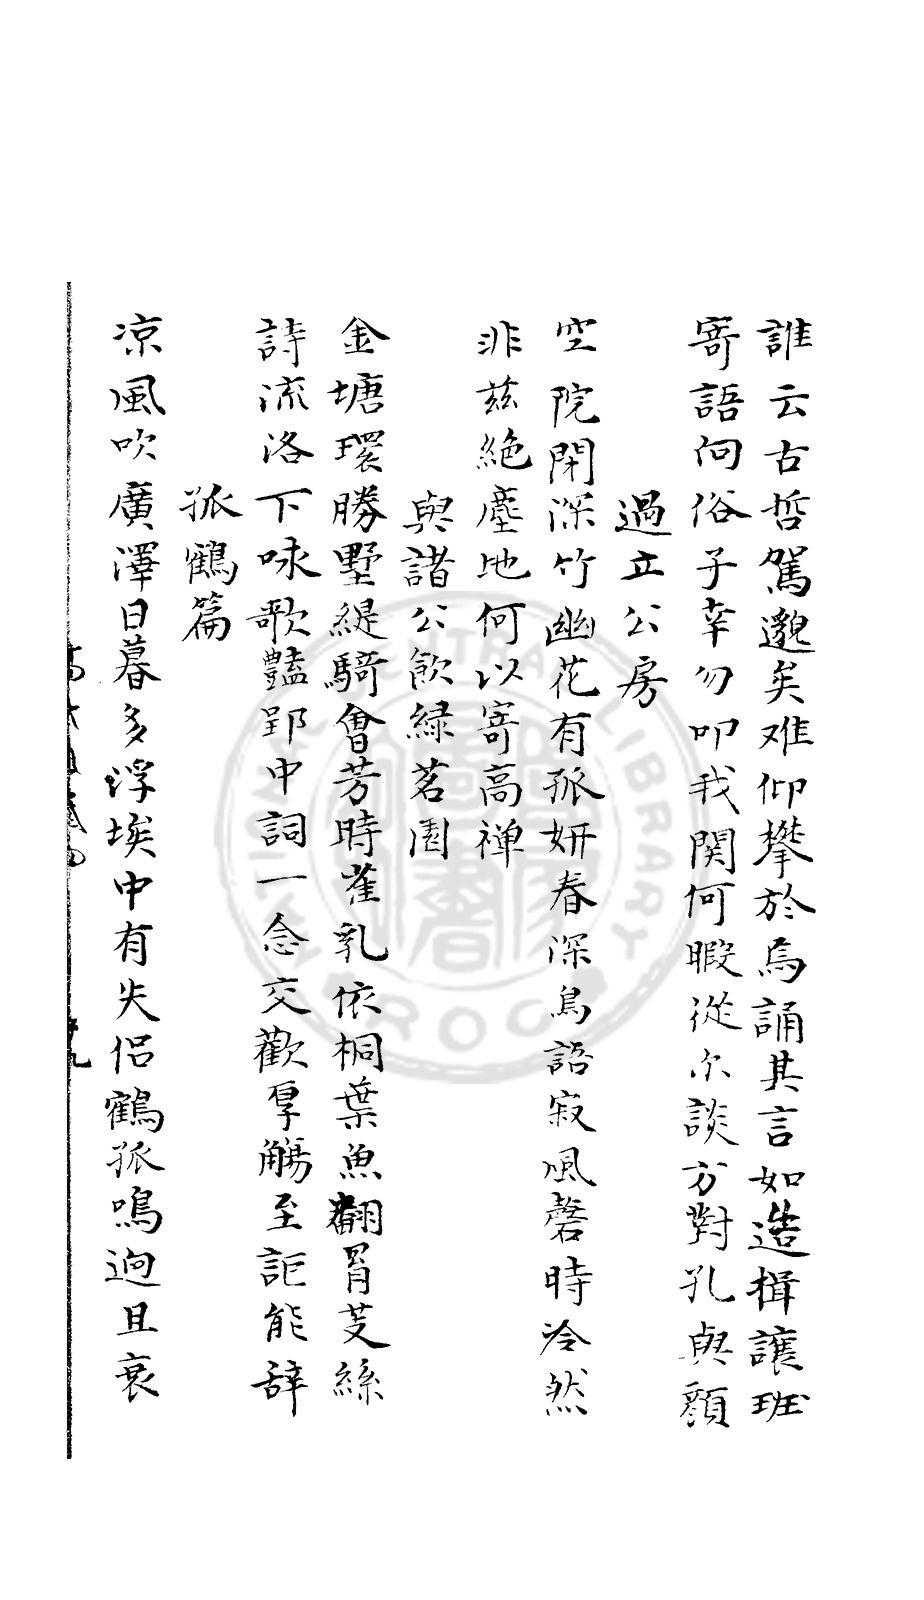 誰云古哲駕邈矣难仰攀於焉誦其言如造揖讓班
寄語向俗子幸勿叩我関何暇從尔談方對孔與顔
過立公房
空院閉深竹幽花有孤妍春深鳥語寂風磬時泠然
非茲絶塵地何以寄高禅
與諸公飲緑茗園
金塘環勝墅緹騎會芳時雀乳依桐葉魚翻罥芰絲
詩流洛下咏歌豔郢中詞一念交歡厚觴至詎能辞
孤鶴篇
凉風吹廣澤日暮多浮埃中有失侣鶴孤鳴迥且哀
CENTRAL LIBRARY
R.O.C.